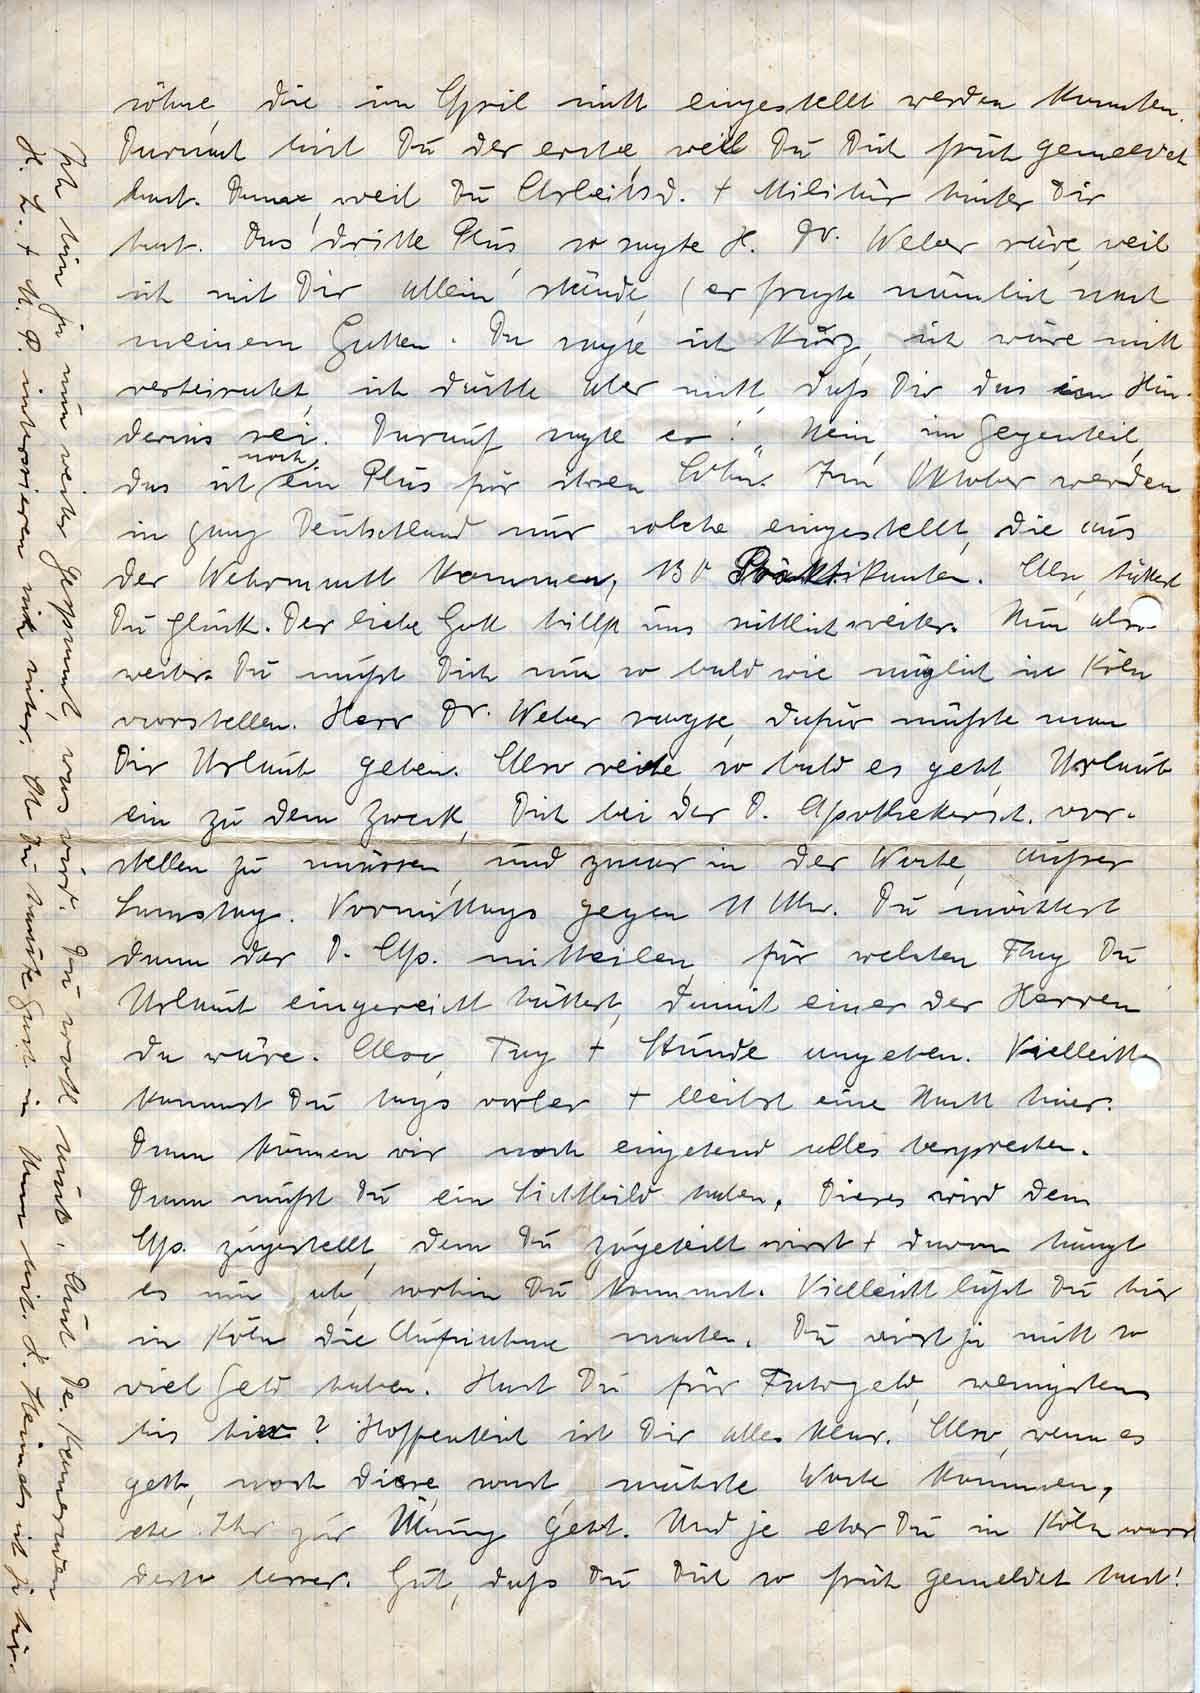 söhne, die im April nicht eingestellt werden konnten.
Darunter bist Du der erste, weil Du Dich früh gemeldet
hast. Dann, weil Du Arbeitsd. + Militär hinter Dir
hast. Das dritte Plus, so sagte H. Dr. Weber wäre, weil
ich mit Dir allein stände, (er fragte nämlich nach
meinem Gatten. Da sagte ich kurz, ich wäre nicht
verheiratet, ich dächte aber nicht, daß Dir das ein Hin-
dernis sei. Darauf sagte er: „Nein, im Gegenteil,
das ist noch ein Plus für ihren Sohn." Im Oktober werden
in ganz Deutschland nur solche eingestellt, die aus
der Wehrmacht kommen, 130 Praktikanten. Also, hättest
Du Glück. Der liebe Gott hilft uns sichtlich weiter. Nun also
weiter. Du mußt Dich nun so bald wie möglich in Köln
vorstellen. Herr Dr. Weber sagte, dafür müßte man
Dir Urlaub geben. Also reiche, so bald es geht, Urlaub
ein zu dem Zweck, Dich bei der D. Apothekersch. vor-
stellen zu müssen, und zwar in der Woche, außer
Samstag. Vormittags gegen 11 Uhr. Du möchtest
dann der D. Ap. mitteilen, für welchen Tag Du
Urlaub eingereicht hättest, damit einer der Herren
da wäre. Also, Tag + Stunde angeben. Vielleicht
kommst Du tags vorher + bleibst eine Nacht hier.
Dann können wir noch eingehend alles besprechen.
Dann mußt Du ein Lichtbild haben. Dieses wird dem
Ap. zugestellt, dem Du zugeteilt wirst + davon hängt
es nun ab, wohin Du kommst. Vielleicht läßt Du hier
in Köln die Aufnahme machen. Du wirst ja nicht so
viel Geld haben. Hast Du für Fahrgeld, wenigstens
bis hier? Hoffentlich ist Dir alles klar. Also, wenn es
geht, noch diese, sonst nächste Woche kommen,
ehe Ihr zur Übung geht. Und je eher Du in Köln warst
desto besser. Gut, daß Du Dich so früh gemeldet hast!
Ich bin ja nun weiter gespannt, was wird. Du wohl auch. Kameraden
H. Z. + M. P. interessieren mich sicher. In Heimat ist ja hier.